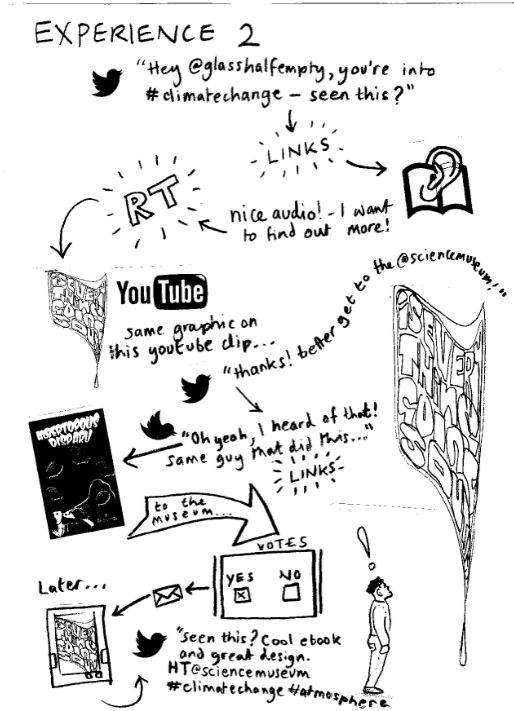 EXPERIENCE 2
"Hey @glasshalfempty, you're into
#climatechange - seen this?"
LINKS
RT
nice audio! - I want
to find out more!
You Tube
same graphic on
this youtube clip...
"thanks! better get to the @sciencemuseum!"
"Oh yeah, I heard of that!
same guy that did this..."
LINKS
to the
museum...
VOTES
YES NO
Later...
"Seen this? Cool ebook
and great design.
HT@sciencemuseum
#climatechange #atmosphere